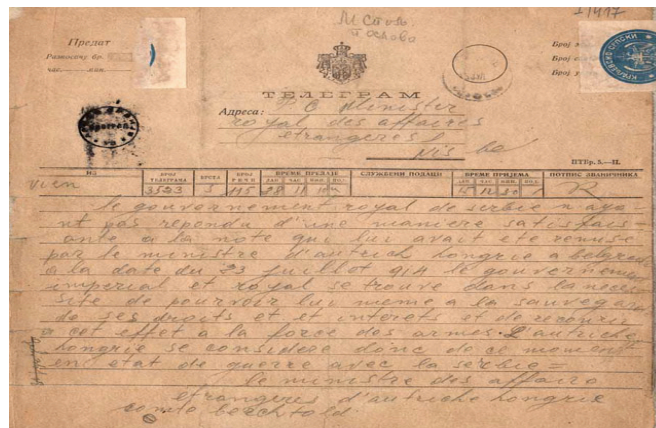 М Стојо
I/417
Предат
Разносачу бр.
час. мин.
Број
Број
Број
КРАЉЕВСКО СРПСКИ
ТЕЛЕГРАМ
Адреса: S E Minister
royal des affaires
etrangeres
nis be
ПТБр. 5.—II.
ИЗ БРОЈ ТЕЛЕГРАМА ВРСТА БРОЈ РЕЧИ ВРЕМЕ ПРЕДАЈЕ СЛУЖБЕНИ ПОДАЦИ ВРЕМЕ ПРИЈЕМА ПОТПИС ЗВАНИЧНИКА
ДАН ЧАС МИН. ПОД. ДАН ЧАС МИН. ПОД.
vien 3523 115 28 11 10 R
le gouvernement royal de serbie n ayo
nt pas repondu d'une maniere satisfais=
ante a la note qui lui avait ete remise
par le ministre d'autrich hongrie a belgrad
a la date du 23 juillet 914 le gouvernemen
imperial et royal se trouve dans la neces
site de pourvoir lui meme a la sauvegar
de ses droits et et interets et de recourir
a cet effet a la force des armes. L'autriche
hongrie se considere donc de ce momen
en etat de guerre avec la serbie=
le ministre des affairo
etrangeres d'autriche hongrie
comte berchtold